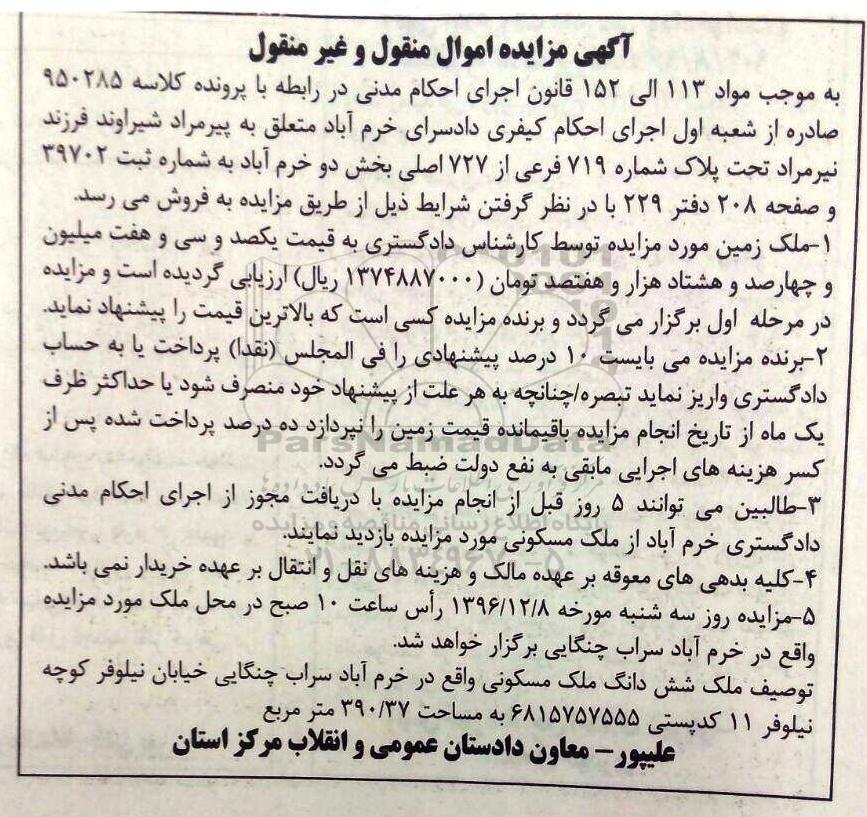 آگهی مزایده اموال منقول و غیر منقول
به موجب مواد ۱۱۳ الی ۱۵۲ قانون اجرای احکام مدنی در رابطه با پرونده کلاسه ۹۵۰۲۸۵
صادره از شعبه اول اجرای احکام کیفری دادسرای خرم آباد متعلق به پیرمراد شیراوند فرزند
نیرمراد تحت پلاک شماره ۷۱۹ فرعی از ۷۲۷ اصلی بخش دو خرم آباد به شماره ثبت ۳۹۷۰۲
و صفحه ۲۰۸ دفتر ۲۲۹ با در نظر گرفتن شرایط ذیل از طریق مزایده به فروش می رسد.
۱-ملک زمین مورد مزایده توسط کارشناس دادگستری به قیمت یکصد و سی و هفت میلیون
و چهارصد و هشتاد هزار و هفتصد تومان (۱۳۷۴۸۸۷۰۰۰ ریال) ارزیابی گردیده است و مزایده
در مرحله اول برگزار می گردد و برنده مزایده کسی است که بالاترین قیمت را پیشنهاد نماید.
۲-برنده مزایده می بایست ۱۰ درصد پیشنهادی را فی المجلس (نقدا) پرداخت یا به حساب
دادگستری واریز نماید تبصره/چنانچه به هر علت از پیشنهاد خود منصرف شود یا حداکثر ظرف
یک ماه از تاریخ انجام مزایده باقیمانده قیمت زمین را نپردازد ده درصد پرداخت شده پس از
کسر هزینه های اجرایی مابقی به نفع دولت ضبط می گردد.
۳-طالبین می توانند ۵ روز قبل از انجام مزایده با دریافت مجوز از اجرای احکام مدنی
دادگستری خرم آباد از ملک مسکونی مورد مزایده بازدید نمایند.
۴-کلیه بدهی های معوقه بر عهده مالک و هزینه های نقل و انتقال بر عهده خریدار نمی باشد.
۵-مزایده روز سه شنبه مورخه ۱۳۹۶/۱۲/۸ رأس ساعت ۱۰ صبح در محل ملک مورد مزایده
واقع در خرم آباد سراب چنگایی برگزار خواهد شد.
توصیف ملک شش دانگ ملک مسکونی واقع در خرم آباد سراب چنگایی خیابان نیلوفر کوچه
نیلوفر ۱۱ کدپستی ۶۸۱۵۷۵۷۵۵۵ به مساحت ۳۹۰/۳۷ متر مربع
علیپور – معاون دادستان عمومی و انقلاب مرکز استان
ParsNamadData
پایگاه اطلاع رسانی مناقصه و مزایده